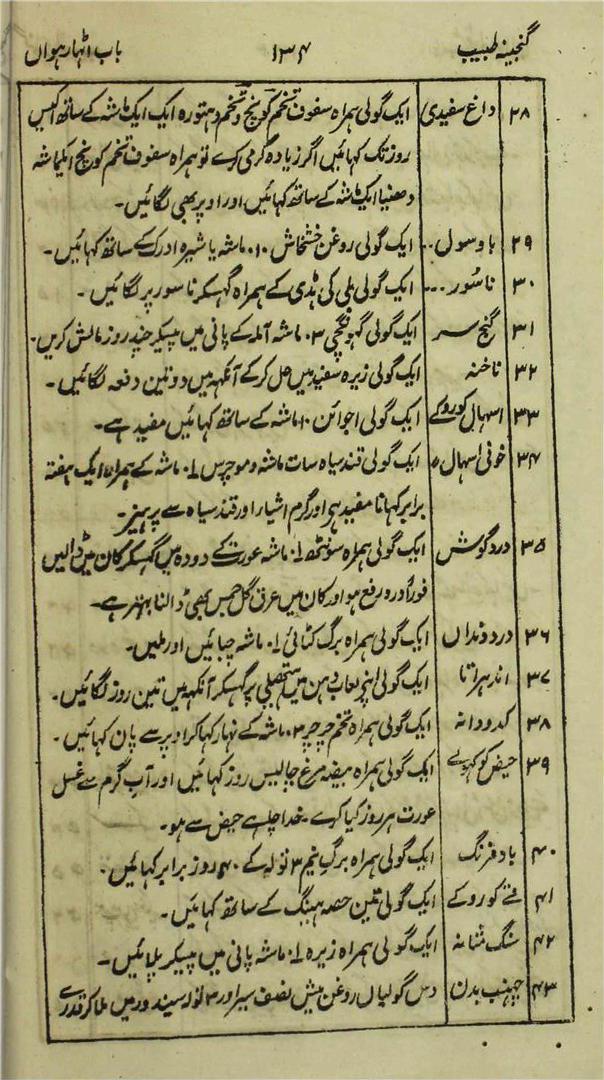 گنجینہ طبیب ۱۳۴ باب اٹھارہواں
۲۸ داغ سفیدی ایک گولی ہمراہ سفوف تخم کونچ و تخم دہتورہ ایک ایک ماشہ کے ساتھ اکیس
روز تک کہائیں اگر زیادہ گرمی کرے تو ہمراہ سفوف تخم کونچ ایکماشہ
دھنیا ایک ماشہ کے ساتھ کہائیں اور اوپر بھی لگائیں۔
۲۹ باوسول.. ایک گولی روغن خشخاش ۱۰ ماشہ یا شیرہ ادرک کے ساتھ کہائیں۔
۳۰ ناسُور... ایک گولی بلی کی ہڈی کے ہمراہ گہسکر ناسور پر لگائیں۔
۳۱ گنج سر ایک گولی گہونگچی ۳ ماشہ آملہ کے پانی میں پیسکر چند روز مالش کریں۔
۳۲ ناخنہ ایک گولی زیرہ سفید میں حل کر کے آنکہہ میں دو تین دفعہ لگائیں۔
۳۳ اسہال کو روکے ایک گولی اجوائن ۱۰ ماشہ کے ساتھ کہائیں مفید ہے۔
۳۴ خونی اسہال ایک گولی قند سیاہ سات ماشہ و موچرس ۱۰ ماشہ کے ہمراہ ایک ہفتہ
برابر کہانا مفید ہے اور گرم اشیار اور قند سیاہ سے پرہیز۔
۳۵ درد گوش ایک گولی ہمراہ سونٹھ ۱۰ ماشہ عورت کے دودہ میں گہسکر کان میں ڈالیں
فوراً درد رفع ہو اور کان میں عرق گل بھی ڈالنا بہتر ہے۔
۳۶ درد دنداں ایک گولی ہمراہ برگ کٹائی ۱۰ ماشہ چبائیں اور ملیں۔
۳۷ اندہراتا ایک گولی اپنے لعاب دہن میں ہتھیلی پر گہسکر آنکہہ میں تین روز لگائیں۔
۳۸ کدو دانہ ایک گولی ہمراہ تخم چرچر ۳ ماشہ کے نہار کہا کر اوپر سے پان کہائیں۔
۳۹ حیض کو کہولے ایک گولی ہمراہ بیضہ مرغ چالیس روز کہائیں اور آب گرم سے غسل
عورت ہر روز کیا کرے۔ خدا چاہے حیض سے ہو۔
۴۰ باد فرنگ ایک گولی ہمراہ برگ نیم ۳ تولہ کے ۴۰ روز برابر کہائیں۔
۴۱ قے کو روکے ایک گولی تین حصہ ہینگ کے ساتھ کہائیں۔
۴۲ سنگ مثانہ ایک گولی ہمراہ زیرہ ۱۰ ماشہ پانی میں پیسکر پلائیں۔
۴۳ چہنب بدن دس گولیاں روغن میش نصف سیر اور ۳ تولہ سیندور میں ملا کر قدرے